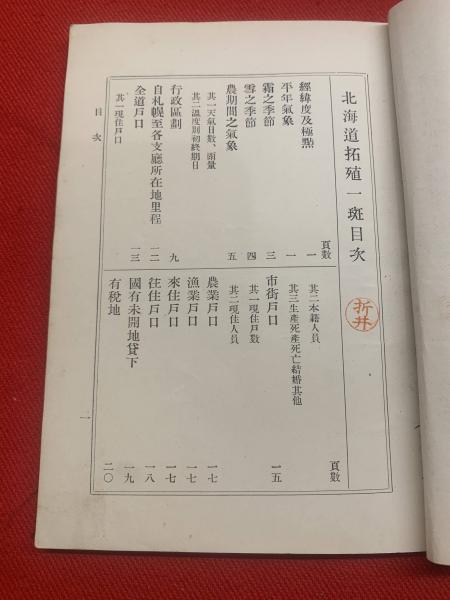 北海道拓殖一斑目次
折井
頁數
經緯度及極點 一
平年氣象 一
霜之季節 三
雪之季節 四
農期間之氣象 五
其一天氣日數、雨量
其二溫度別初終期日
行政區劃 九
自札幌至各支廳所在地里程 一二
全道戶口 一三
其一現住戶口
頁數
其二本籍人員
其三生產死產死亡結婚其他
市街戶口 一五
其一現住戶數
其二現住人員
農業戶口 一七
漁業戶口 一七
來住戶口 一七
往住戶口 一八
國有未開地貸下 一九
有稅地 二〇
目次
一